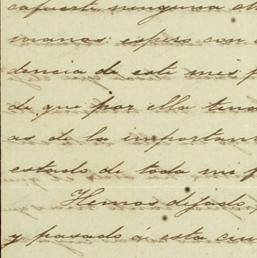 capuesto ninguna
manos: espero con
dencia de este mes
de que por ella
as de la importan
estado de toda mi
Hemos dejado
y pasado á esta ciu